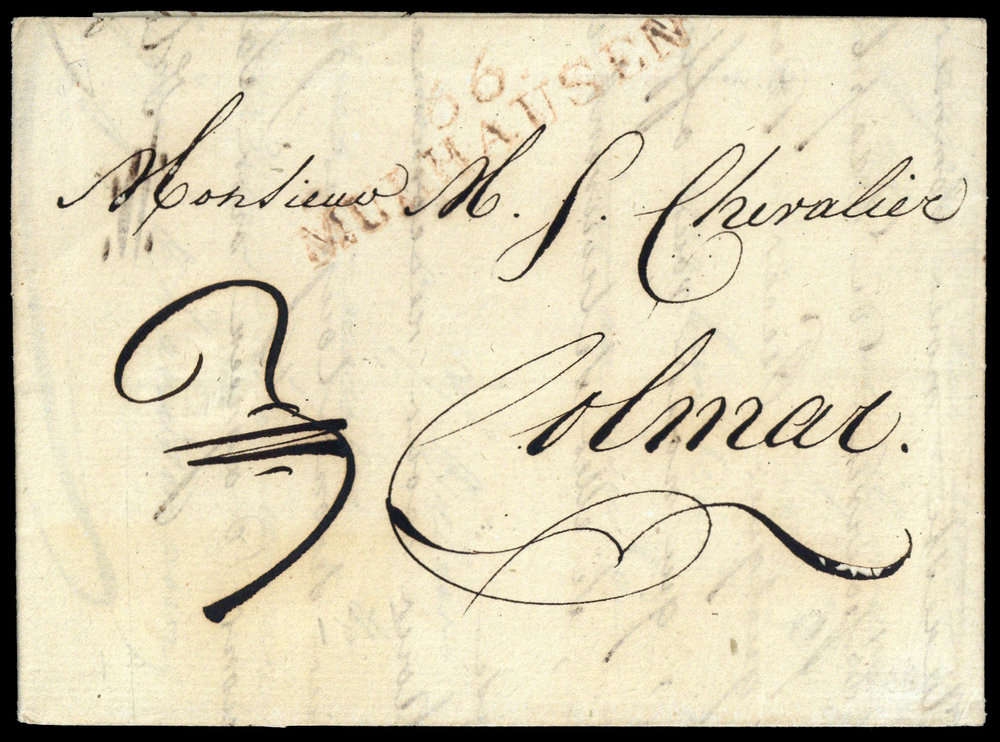 66.
MULHAUSEN
Monsieur M. S. Chevalier
3
Colmar.